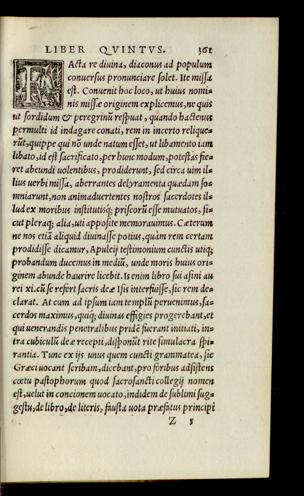 LIBER QVINTVS. 361
FActa re diuina, diaconus ad populum
conuersus pronunciare solet. Ite missa
est. Conuenit hoc loco, ut huius nomi-
nis missæ originem explicemus, ne quis
ut sordidum & peregrinū respuat, quando hactenus
permulti id indagare conati, rem in incerto relique-
rūt, quippe qui nō unde natum esset, ut libamento iam
libato, id est sacrificato, per hunc modum, potestas fie-
ret abeundi uolentibus, prodiderunt, sed circa uim il-
lius uerbi missa, aberrantes delyramenta quædam so-
mniarunt, non animaduertentes nostros sacerdotes il-
lud ex moribus institutisq; priscorū esse mutuatos, si-
cut pleraq; alia, uti apposite memorauimus. Cæterum
ne nos etiā aliquid diuinasse potius, quàm rem certam
prodidisse dicamur, Apuleij testimonium cunctis utiq;
probandum ducemus in mediū, unde moris huius ori-
ginem abunde haurire licebit. Is enim libro sui asini au
rei xi. cū se refert sacris deæ Isis interfuisse, sic rem de-
clarat. At cum ad ipsum iam templū peruenimus, sa-
cerdos maximus, quiq; diuinas effigies progerebant, et
qui uenerandis penetralibus pridē fuerant initiati, in-
tra cubiculū deæ recepti, disponūt rite simulacra spi-
rantia. Tunc ex ijs unus quem cuncti grammatea, sic
Græci uocant scribam, dicebant, pro foribus adsistens
cœtu pastophorum quod sacrosancti collegij nomen
est, uelut in concionem uocato, indidem de sublimi sug-
gestu, de libro, de literis, fausta uota præfatus principi
Z 5